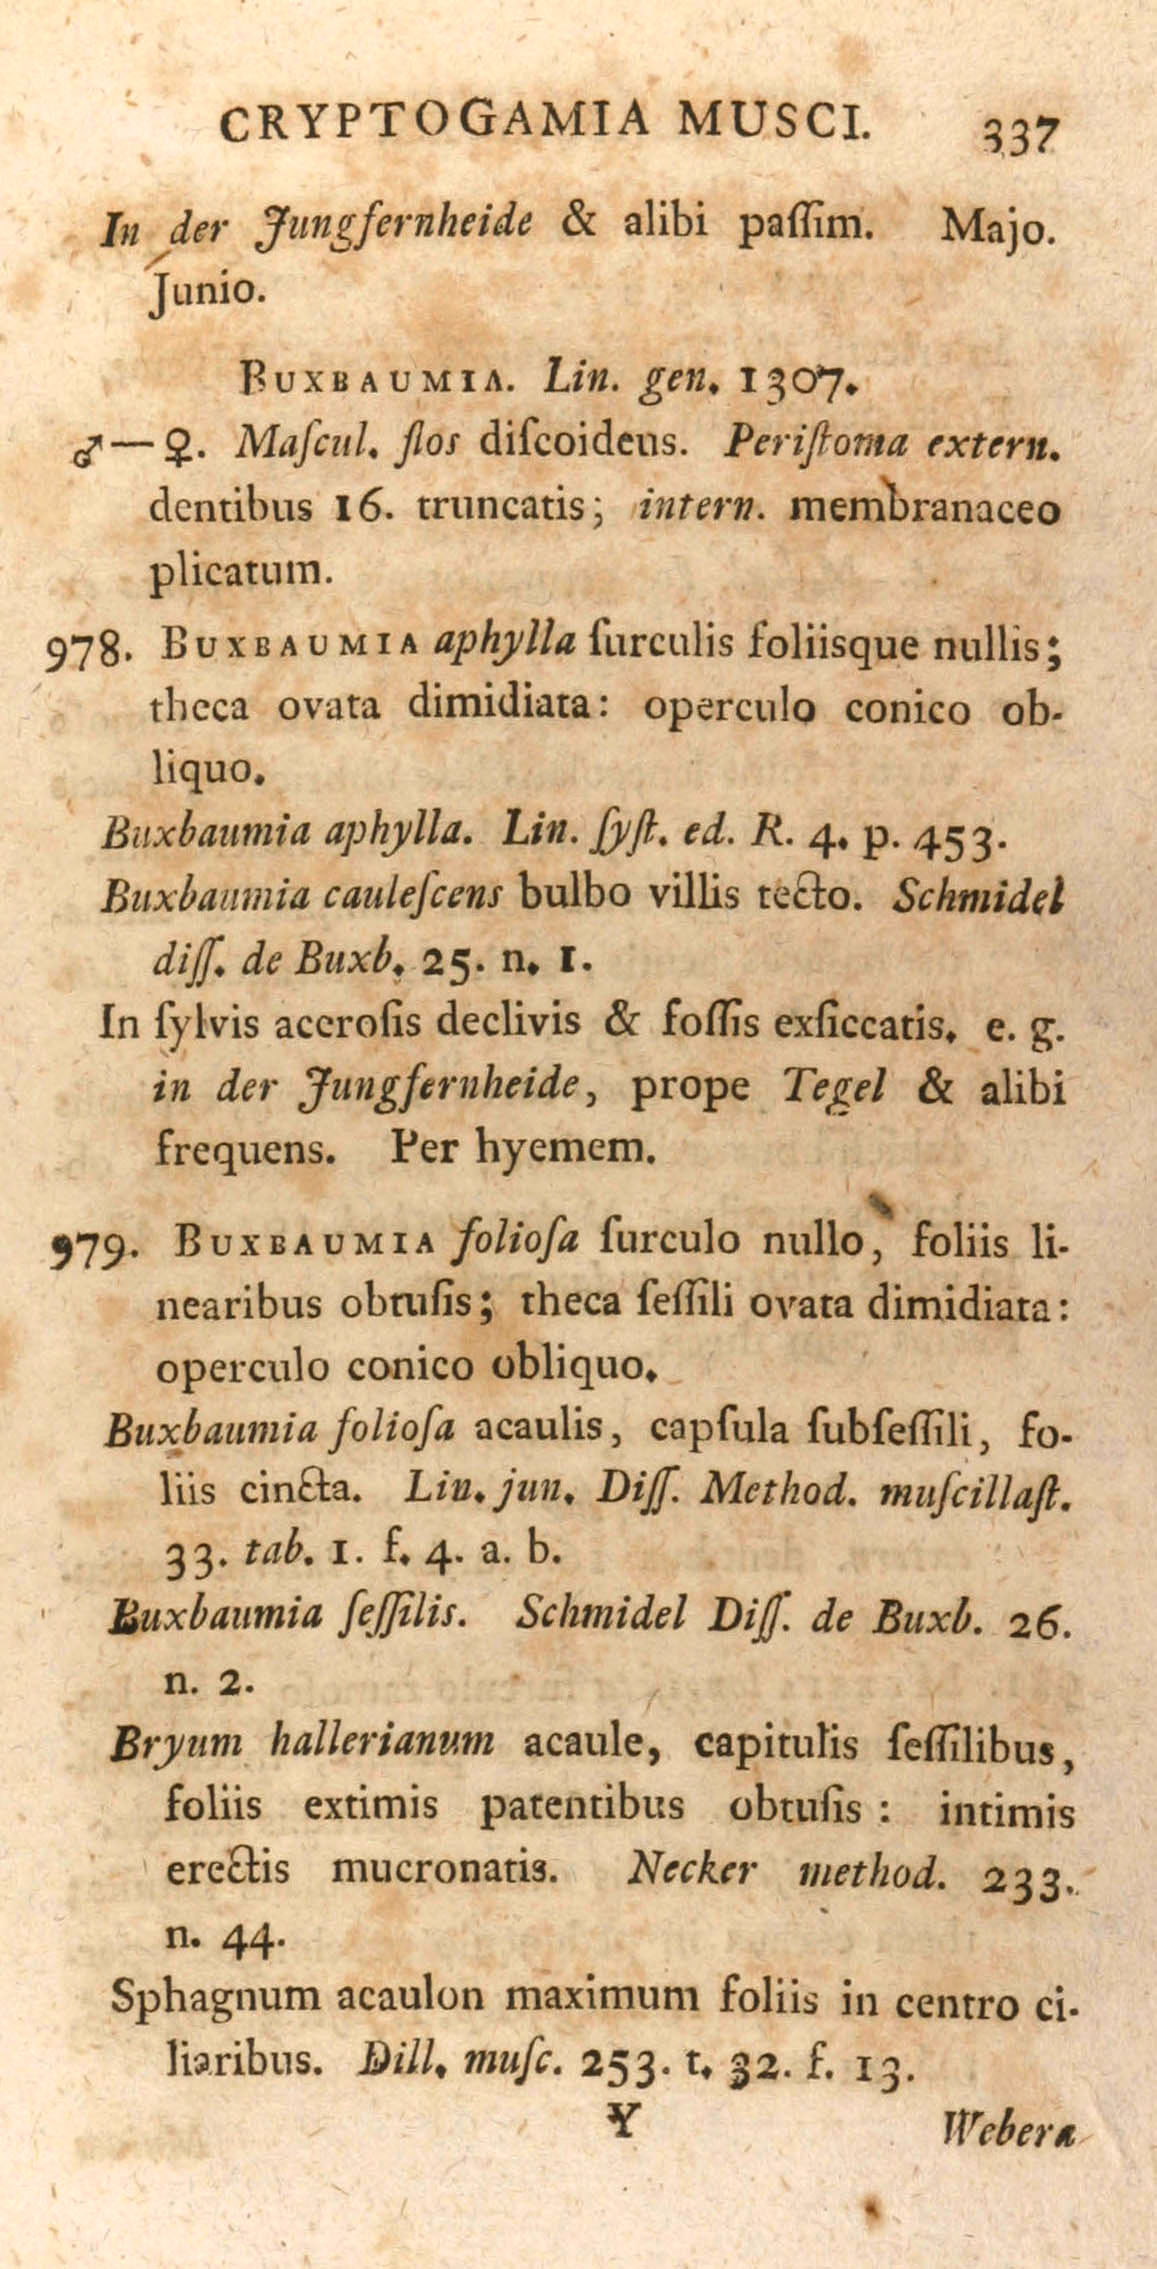 CRYPTOGAMIA MUSCI. 337
In der Jungfernheide & alibi paſſim. Majo.
Junio.
BUXBAUMIA. Lin. gen. 1307.
♂—♀. Maſcul. flos diſcoideus. Periſtoma extern.
dentibus 16. truncatis; intern. membranaceo
plicatum.
978. BUXBAUMIA aphylla ſurculis foliisque nullis;
theca ovata dimidiata: operculo conico ob-
liquo.
Buxbaumia aphylla. Lin. ſyſt. ed. R. 4. p. 453.
Buxbaumia cauleſcens bulbo villis tecto. Schmidel
diſſ. de Buxb. 25. n. 1.
In ſylvis aceroſis declivis & foſſis exſiccatis. e. g.
in der Jungfernheide, prope Tegel & alibi
frequens. Per hyemem.
979. BUXBAUMIA folioſa ſurculo nullo, foliis li-
nearibus obtuſis; theca ſeſſili ovata dimidiata:
operculo conico obliquo.
Buxbaumia folioſa acaulis, capſula ſubſeſſili, fo-
liis cincta. Lin. jun. Diſſ. Method. muſcillaſt.
33. tab. 1. f. 4. a. b.
Buxbaumia ſeſſilis. Schmidel Diſſ. de Buxb. 26.
n. 2.
Bryum hallerianum acaule, capitulis ſeſſilibus,
foliis extimis patentibus obtuſis: intimis
erectis mucronatis. Necker method. 233.
n. 44.
Sphagnum acaulon maximum foliis in centro ci-
liaribus. Dill. muſc. 253. t. 32. f. 13.
Y Webera